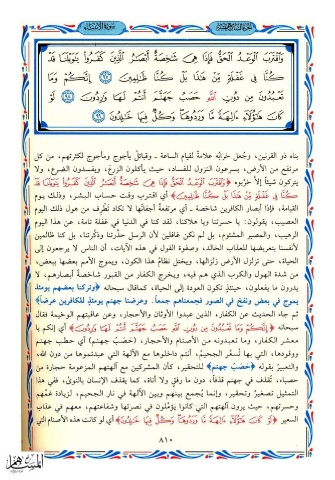 سورة الأنبياء
الجزء السابع عشر
وَاقْتَرَبَ الْوَعْدُ الْحَقُّ فَإِذَا هِيَ شَاخِصَةٌ أَبْصَارُ الَّذِينَ كَفَرُوا يَا وَيْلَنَا قَدْ
كُنَّا فِي غَفْلَةٍ مِنْ هَذَا بَلْ كُنَّا ظَالِمِينَ ۝ إِنَّكُمْ وَمَا
تَعْبُدُونَ مِنْ دُونِ اللَّهِ حَصَبُ جَهَنَّمَ أَنْتُمْ لَهَا وَارِدُونَ ۝ لَوْ
كَانَ هَؤُلَاءِ آلِهَةً مَا وَرَدُوهَا وَكُلٌّ فِيهَا خَالِدُونَ ۝
بناه ذو القرنين، وجُعل خرابُه علامةً لقيام الساعة ـ وقبائلُ يأجوج ومأجوج لكثرتهم، من كل
مرتفع من الأرض، يسرعون النزول للفساد، حيث يأكلون الزرعَ، ويفسدون الضرع، ولا
يتركون شيئاً إلا خرّبوه ﴿وَاقْتَرَبَ الْوَعْدُ الْحَقُّ فَإِذَا هِيَ شَاخِصَةٌ أَبْصَارُ الَّذِينَ كَفَرُوا يَا وَيْلَنَا قَدْ
كُنَّا فِي غَفْلَةٍ مِنْ هَذَا بَلْ كُنَّا ظَالِمِينَ﴾ أي اقترب وقت حساب البشر، وذلك يوم
القيامة، فإذا أبصار الكافرين شاخصة ـ أي مرتفعة أجفانُها لا تكاد تَطْرف من هول ذلك اليوم
العصيب، يقولون: يا حسرتنا ويا هلاكنا، لقد كنا في الدنيا في غفلة تامة، عن هذا اليوم
الرهيب، والمصير المشئوم، بل لم نكن غافلين لأن الرسل حذّرتنا وذكّرتنا، بل كنا ظالمين
لأنفسنا بتعريضها للعذاب الخالد، وصفوة القول في هذه الآيات، أن الناس لا يرجعون إلى
الحياة، حتى تزلزل الأرض زلزالها، ويختل نظام هذا الكون، ويموج الأمم بعضها ببعض،
من شدة الهول والكرب الذي هم فيه، ويخرج الكفار من القبور شاخصةً أبصارهم، لا
يدرون ما يفعلون، حينئذٍ تكون العودة إلى الحياة، كما قال سبحانه ﴿وتركنا بعضهم يومئذ
يموج في بعض ونفخ في الصور فجمعناهم جمعاً. وعرضنا جهنم يومئذٍ للكافرين عرضاً﴾
ثم جاء الحديث عن الكفار، الذين عبدوا الأوثان والأحجار، وعن عاقبتهم الوخيمة فقال
سبحانه ﴿إِنَّكُمْ وَمَا تَعْبُدُونَ مِنْ دُونِ اللَّهِ حَصَبُ جَهَنَّمَ أَنْتُمْ لَهَا وَارِدُونَ﴾ أي إنكم يا
معشر الكفار، وما تعبدونه من الأصنام والأحجار، (حَصَبُ جهنم) أي حطب جهنم
ووقودها، التي بها تُسعَّر الجحيمُ، أنتم داخلوها مع الآلهة التي عبدتموها من دون الله،
والتعبيرُ بقوله ﴿حَصَبُ جهنم﴾ للتحقير، كأن المشركين مع آلهتهم المزعومة حجارة من
حصباء، تُقذف في جهنم قذفاً، دون ما رفقٍ ولا أناة، كما يقذف الإنسان بالنوى، ففي هذا
التمثيل تصغيرٌ وتحقير، وإنما يُجمع بينهم وبين الآلهة في نار الجحيم، لزيادة غمِّهم
وحسرتهم، حيث يرون آلهتهم التي كانوا يؤمِّلون في نصرتها وشفاعتهم، معهم في عذاب
السعير ﴿لَوْ كَانَ هَؤُلَاءِ آلِهَةً مَا وَرَدُوهَا وَكُلٌّ فِيهَا خَالِدُونَ﴾ أي لو كانت هذه الأصنام التي
٨١٠